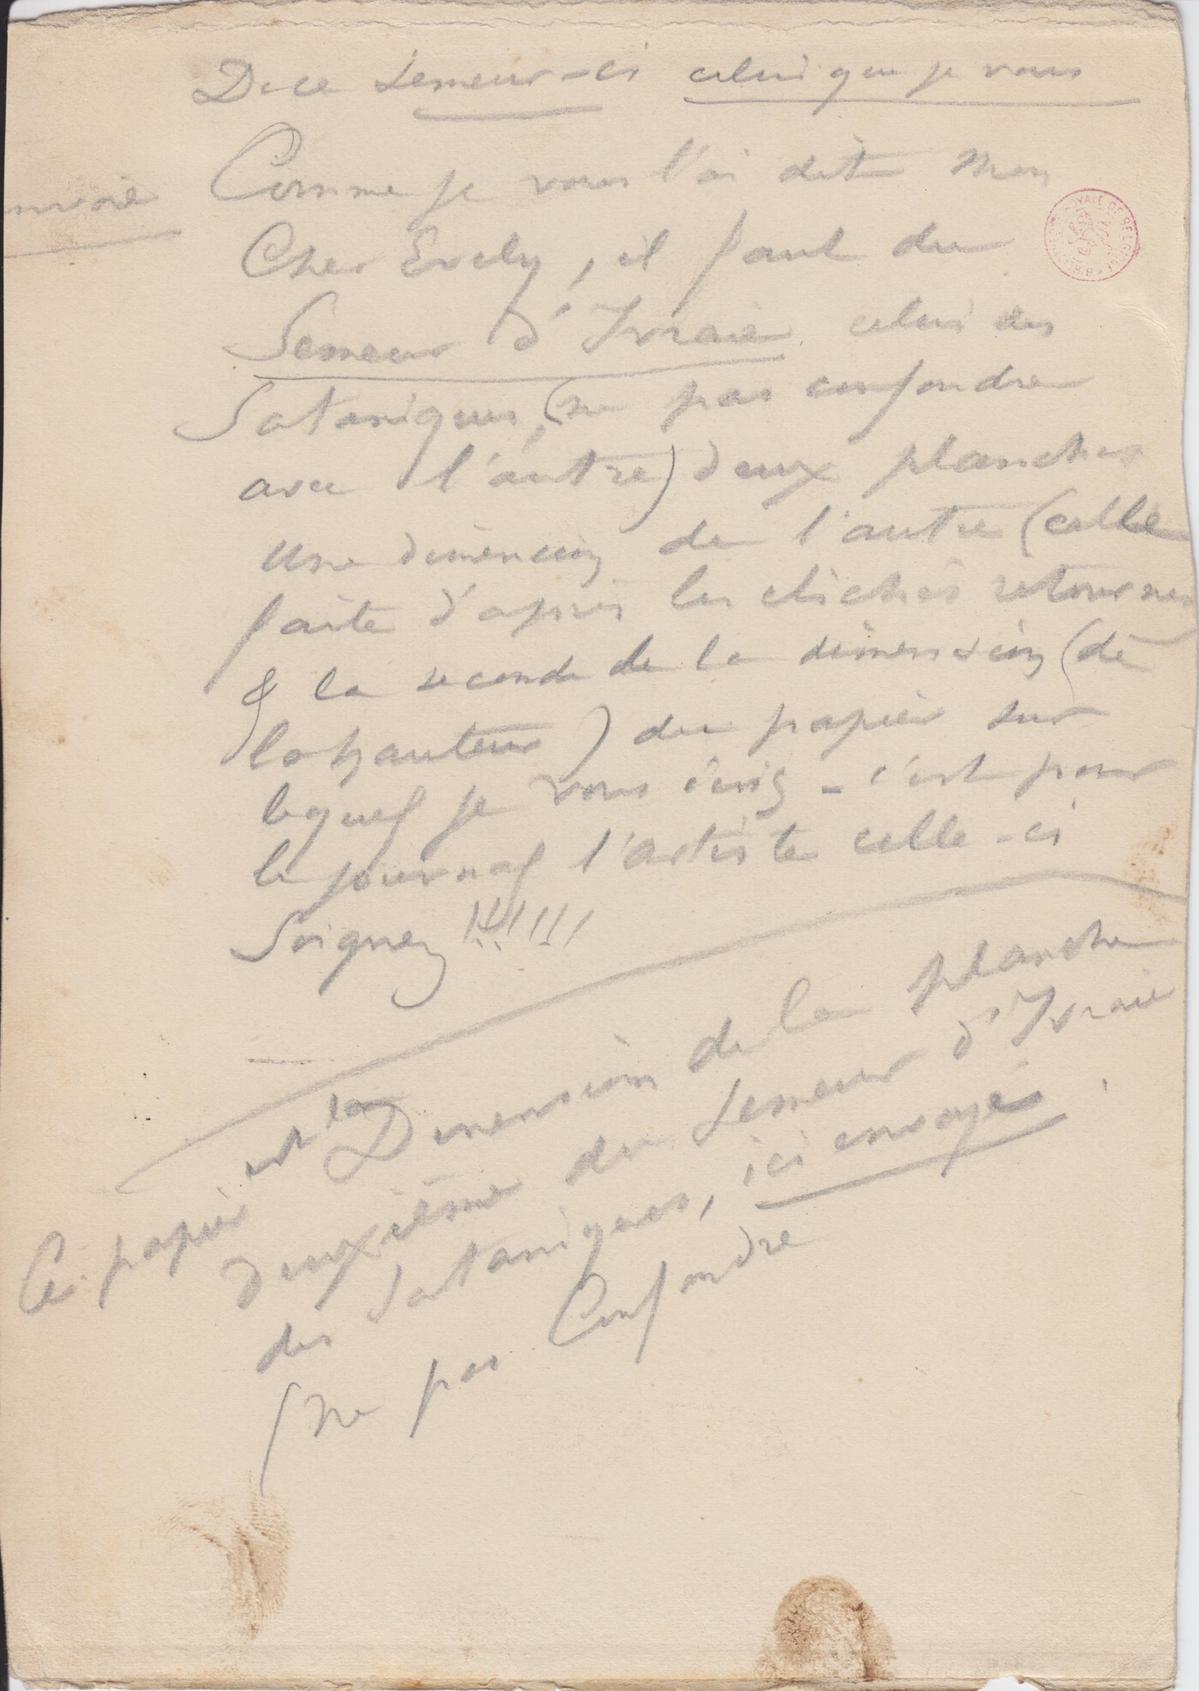 De ce Semeur-ci celui que je vous
envoie
Comme je vous l'ai dit mon
Cher Evely, il faut du
Semeur d'Ivraie celui des
Sataniques, (ne pas confondre
avec l'autre) deux planches
une dimencion de l'autre (celle
faite d'après les clichés retournés
& la seconde de la dimension (de
la hauteur) du papier sur
lequel je vous écris - c'est pour
le journal l'artiste celle-ci
Soignez !!!!!!
Ce papier est la Dimension de la planche
deuxième du Semeur d'Ivraie
des Sataniques, ici envoyés
(ne pas Confondre